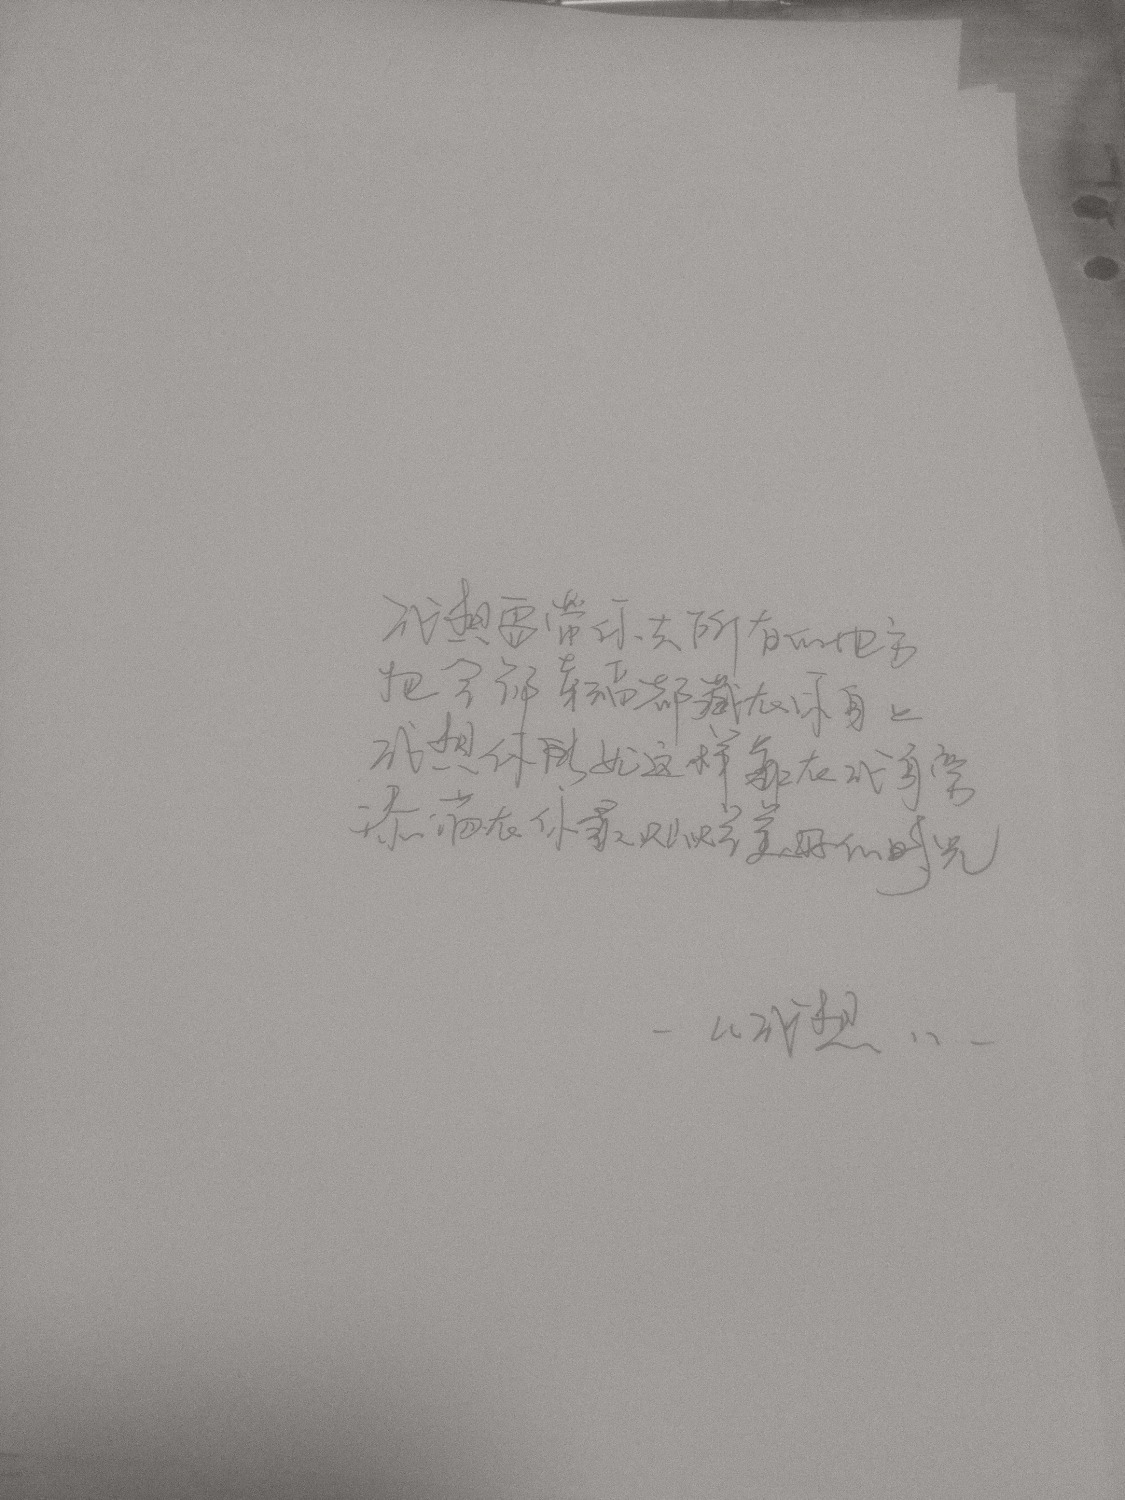 我想要带你去所有的地方
把全部幸福都藏在你身上
我想你能如这样靠在我身旁
沐浴在你最
美好的时光
— 《我想》 —